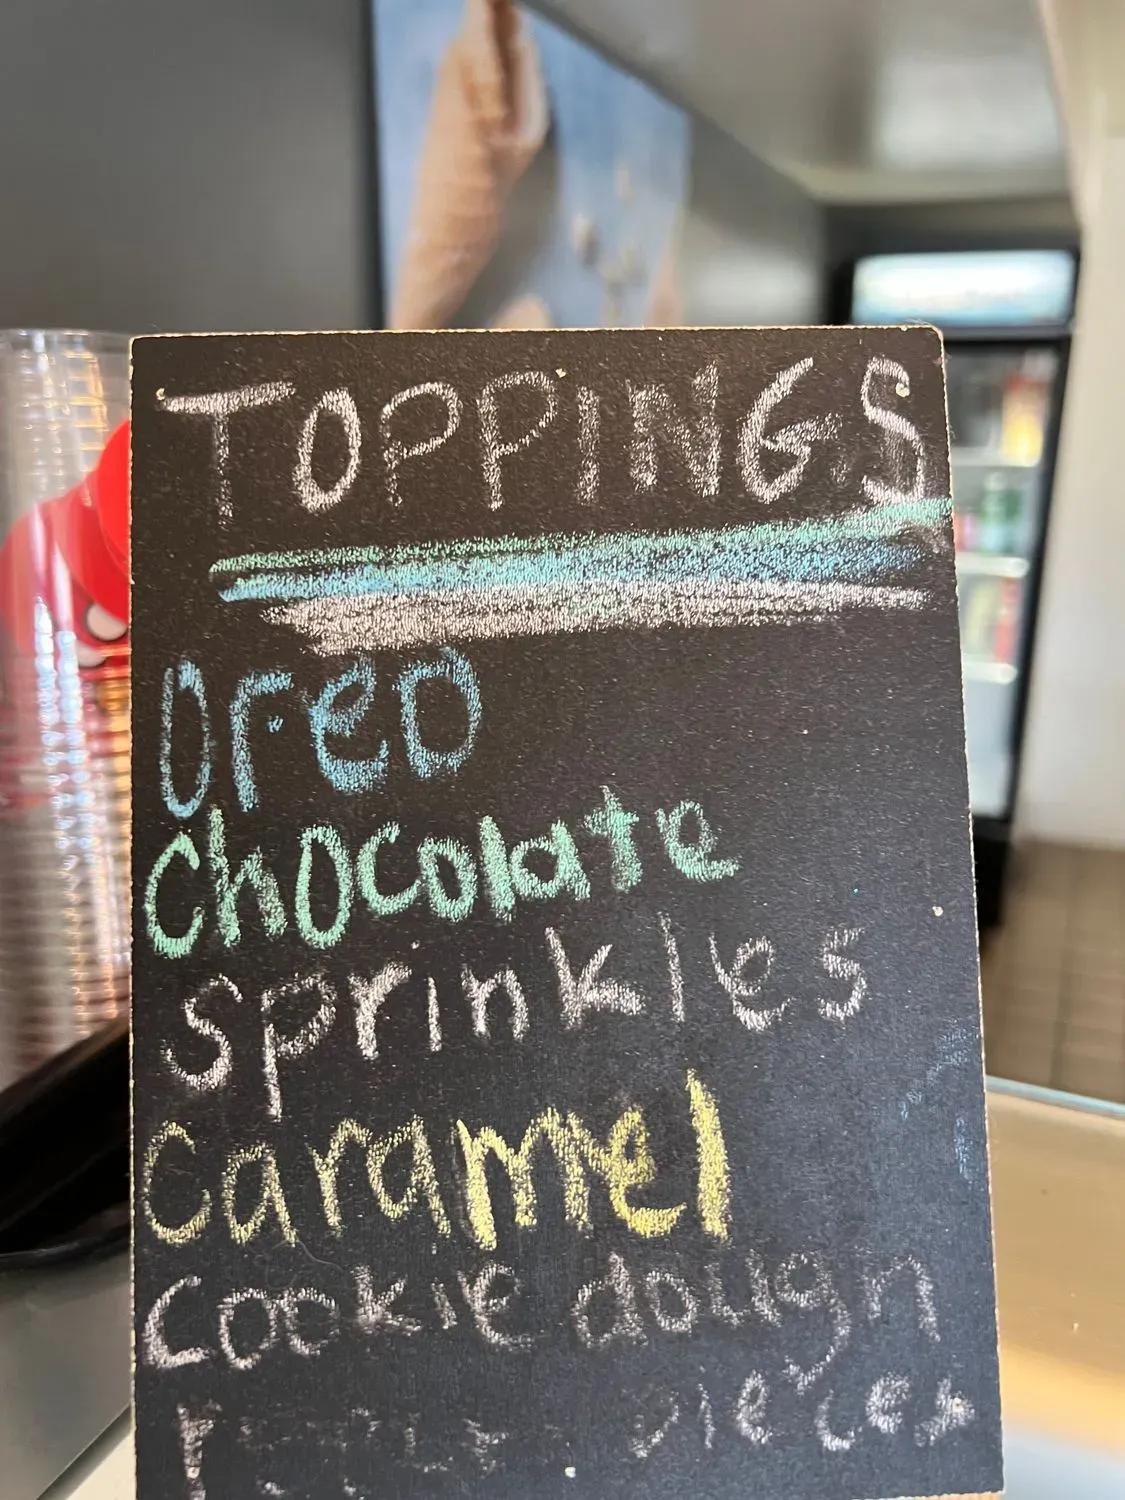 TOPPINGS
Oreo
chocolate
sprinkles
caramel
cookie dough
pieces